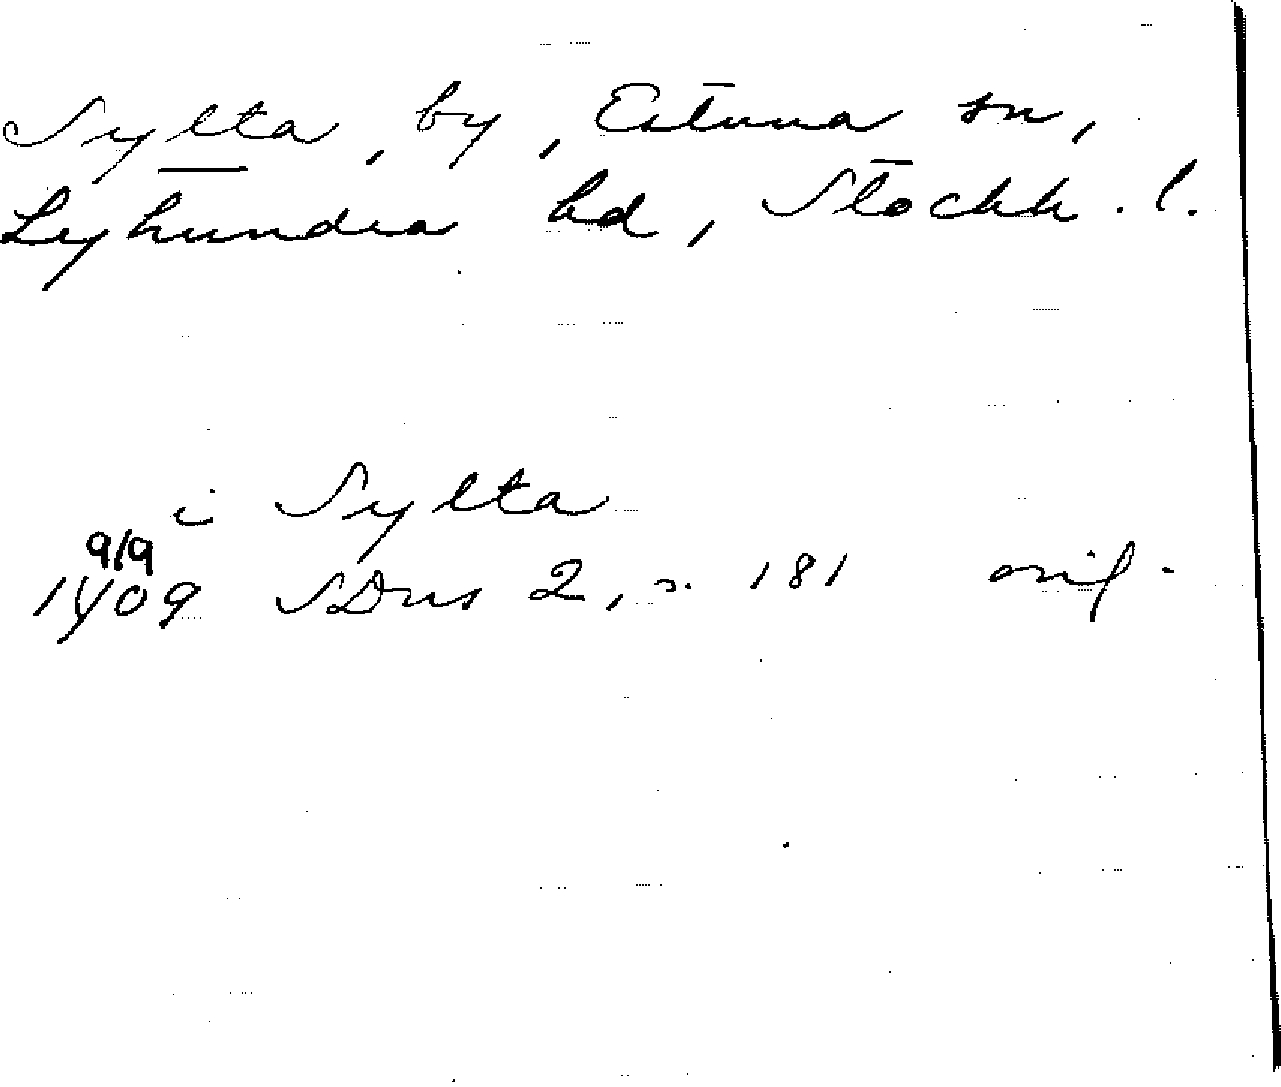 Sylta, by, Estuna sn,
Lyhundra hd, Stockh. l.
i Sylta
9/9
1409 SDns 2, s. 181 orig.